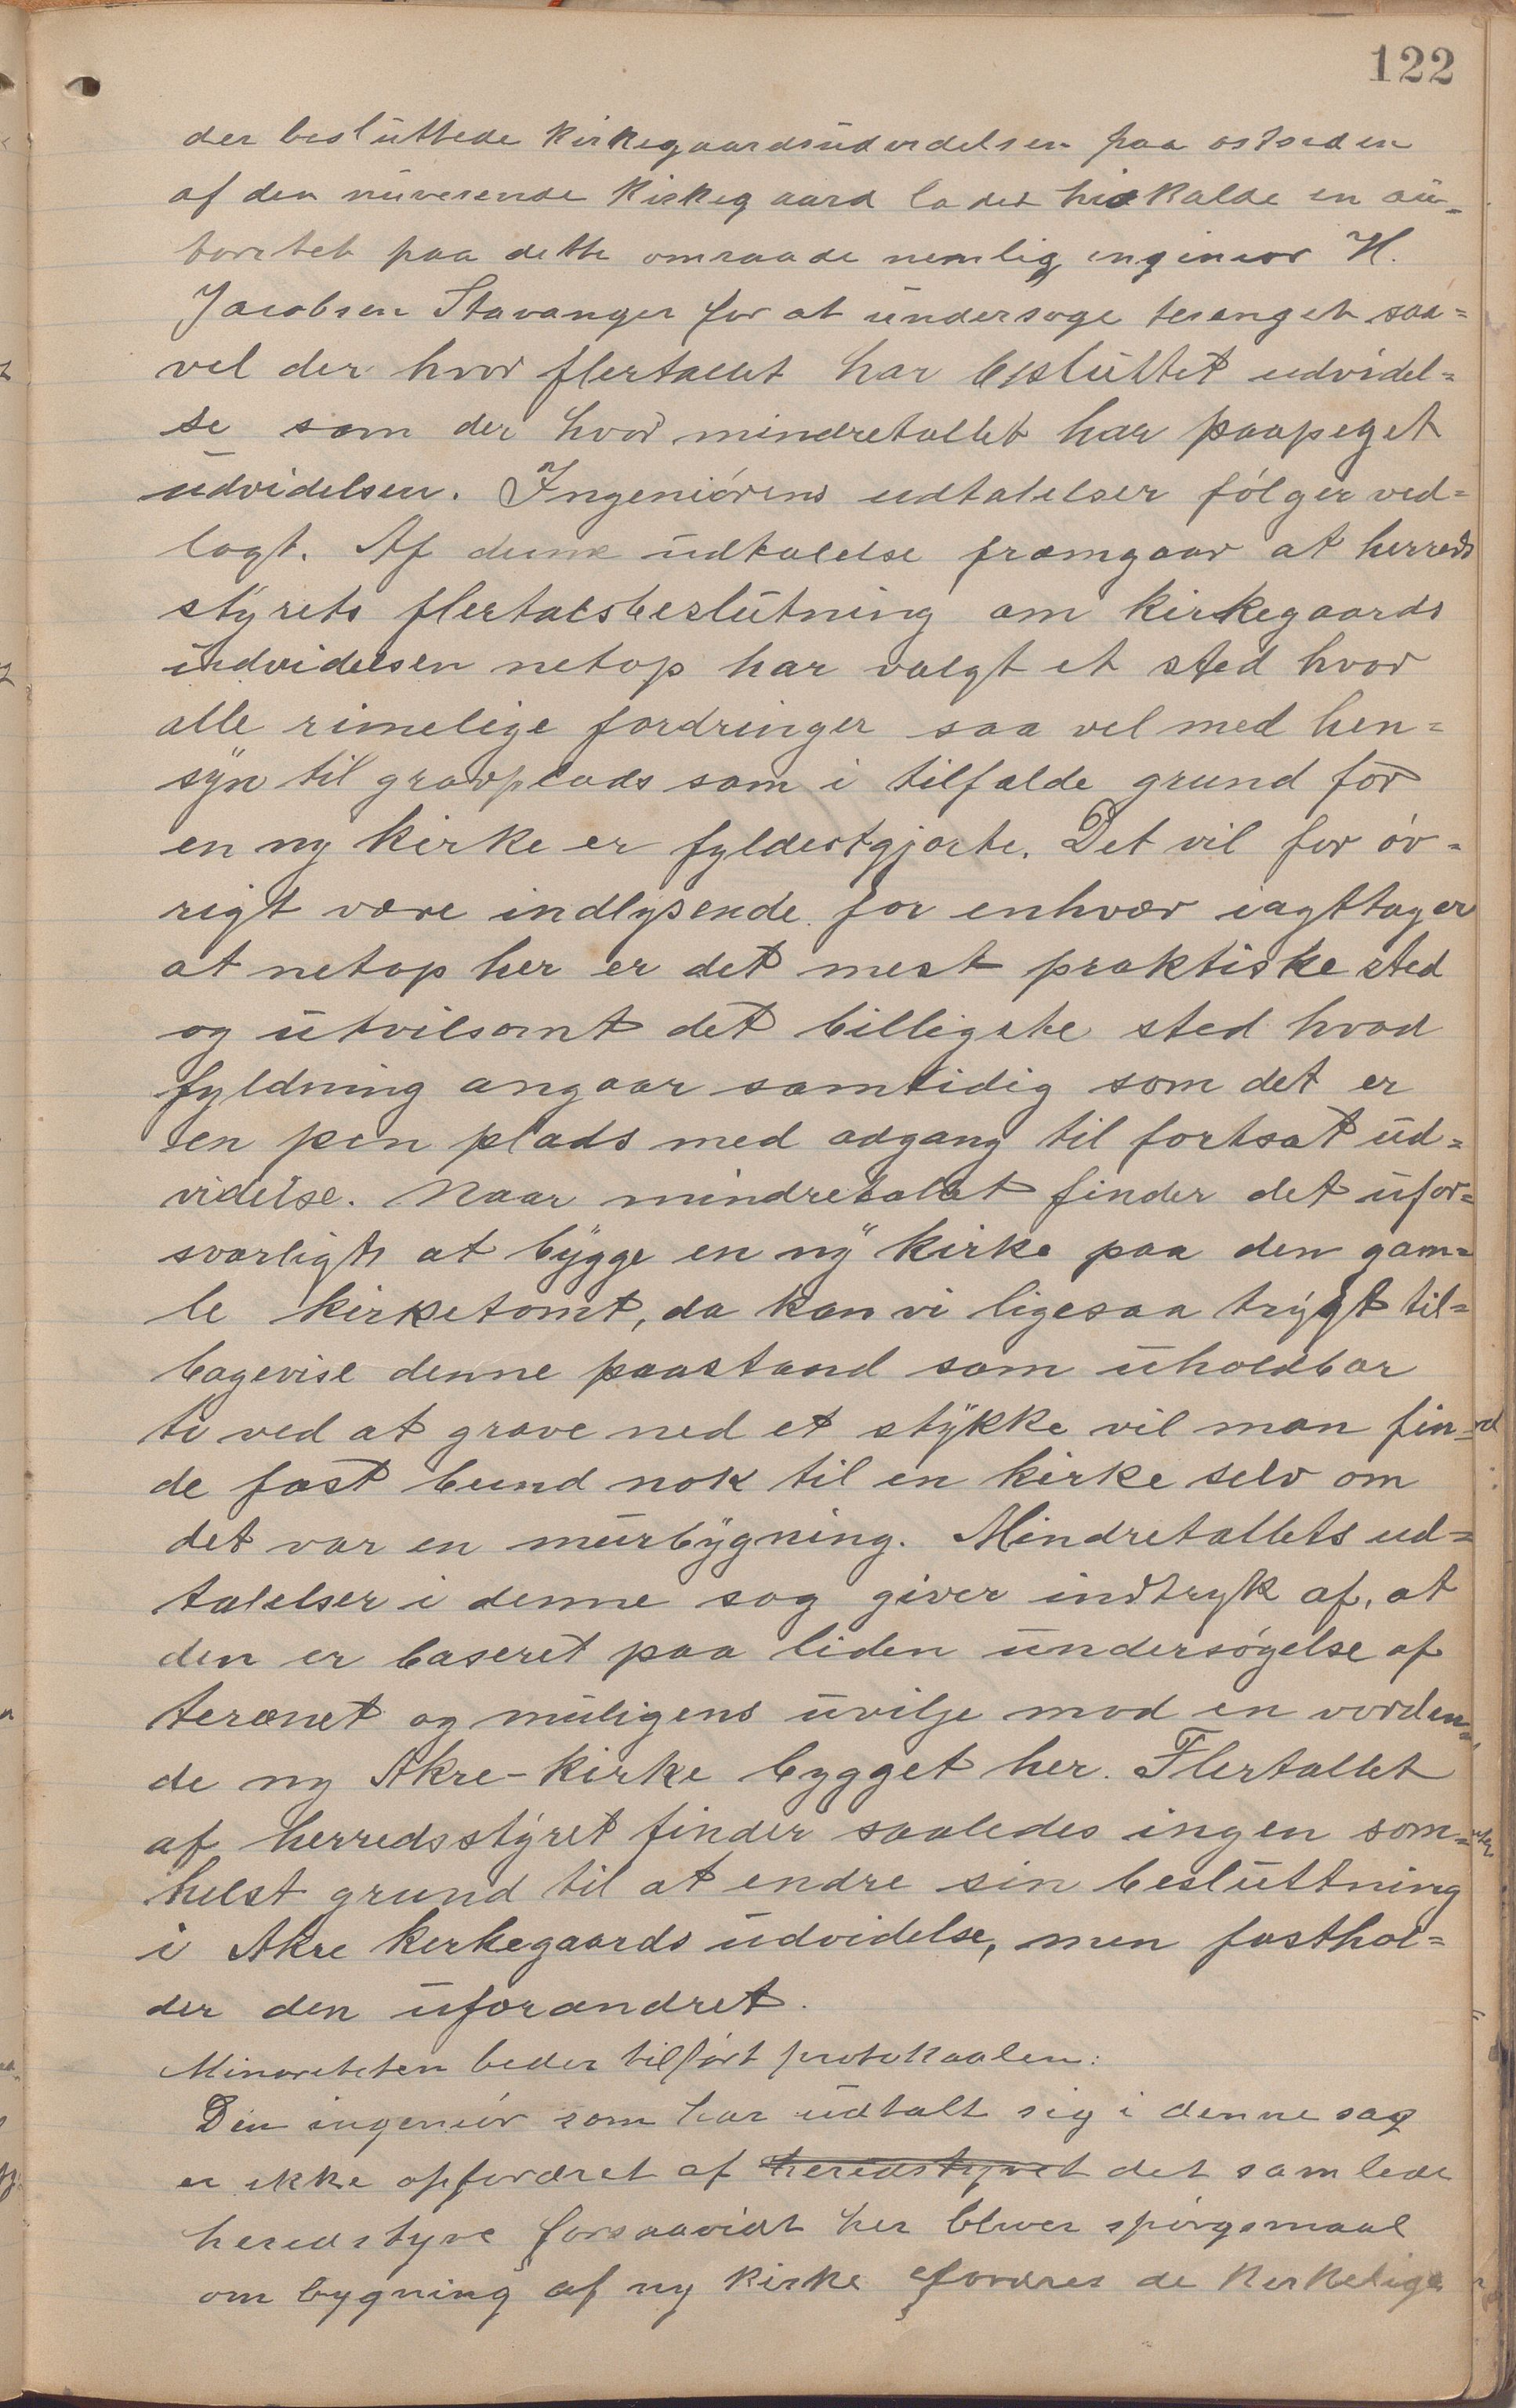 122
der besluttede kirkegaardsudvidelsen paa østsiden
af den nuværende kirkegaard ladet hidkalde en au-
toritet paa dette omraade nemlig ingeniør H.
Jacobsen Stavanger for at undersøge terænget saa=
vel der hvor flertallet har besluttet udvidel=
se som der hvor mindretallet har paapeget
udvidelsen. Ingeniørens udtalelser følger ved=
lagt. Af denne udtalelse fræmgaar at herreds
styrets flertalsbeslutning om kirkegaards
indvidelsen netop har valgt et sted hvor
alle rimelige fordringer saa vel med hen=
syn til gravplads som i tilfælde grund for
en ny kirke er fyldestgjorte. Det vil for øv=
rigt være indlysende for enhver iagttager
at netop her er det mest praktiske sted
og utvilsomt det billigste sted hvad
fyldning angaar samtidig som det er
en pen plads med adgang til fortsat ud=
videlse. Naar mindretallet finder det ufor=
svarligt at bygge en ny kirke paa den gam=
le kirketomt, da kan vi ligesaa trygt til=
bagevise denne paastand som uholdbar
ti ved at grave ned et stykke vil man fin=
de fast bund nok til en kirke selv om
det var en murbygning. Mindretallets ud=
talelser i denne sag giver indtryk af, at
den er baseret paa liden undersøgelse af
terænet og muligens uvilje mod en vorden=
de ny Akre-kirke bygget her. Flertallet
af herredsstyret finder saaledes ingen som=
helst grund til at endre sin besluttning
i Akre kerkegaards udvidelse, men fasthol=
der den uforandret.
Minoriteten beder tilført protokaalen:
Den ingeniør som har udtalt sig i denne sag
er ikke opfordret af heredstyret det samlede
heredstyre forsaavidt her bliver spørgsmaal
om bygning af ny kirke fordres de kerkelige